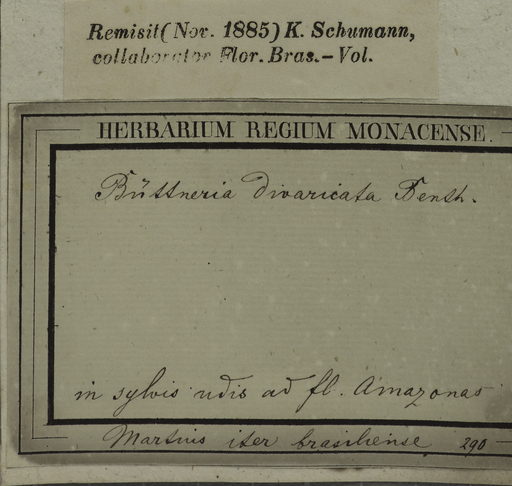 Remisit (Nov. 1885) K. Schumann,
collaborator Flor. Bras. – Vol.
HERBARIUM REGIUM MONACENSE.
Büttneria divaricata Benth.
in sylvis udis ad fl. Amazonas
Martius iter brasiliense 290